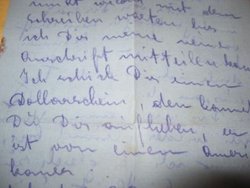 nicht wieder mit dem
Schreiben warten bis
ich Dir meine neue
Anschrift mitteilen kann
Ich schicke Dir einen
Dollarschein, den kannst
Du Dir aufheben, er
ist von einem Ameri
kaner.